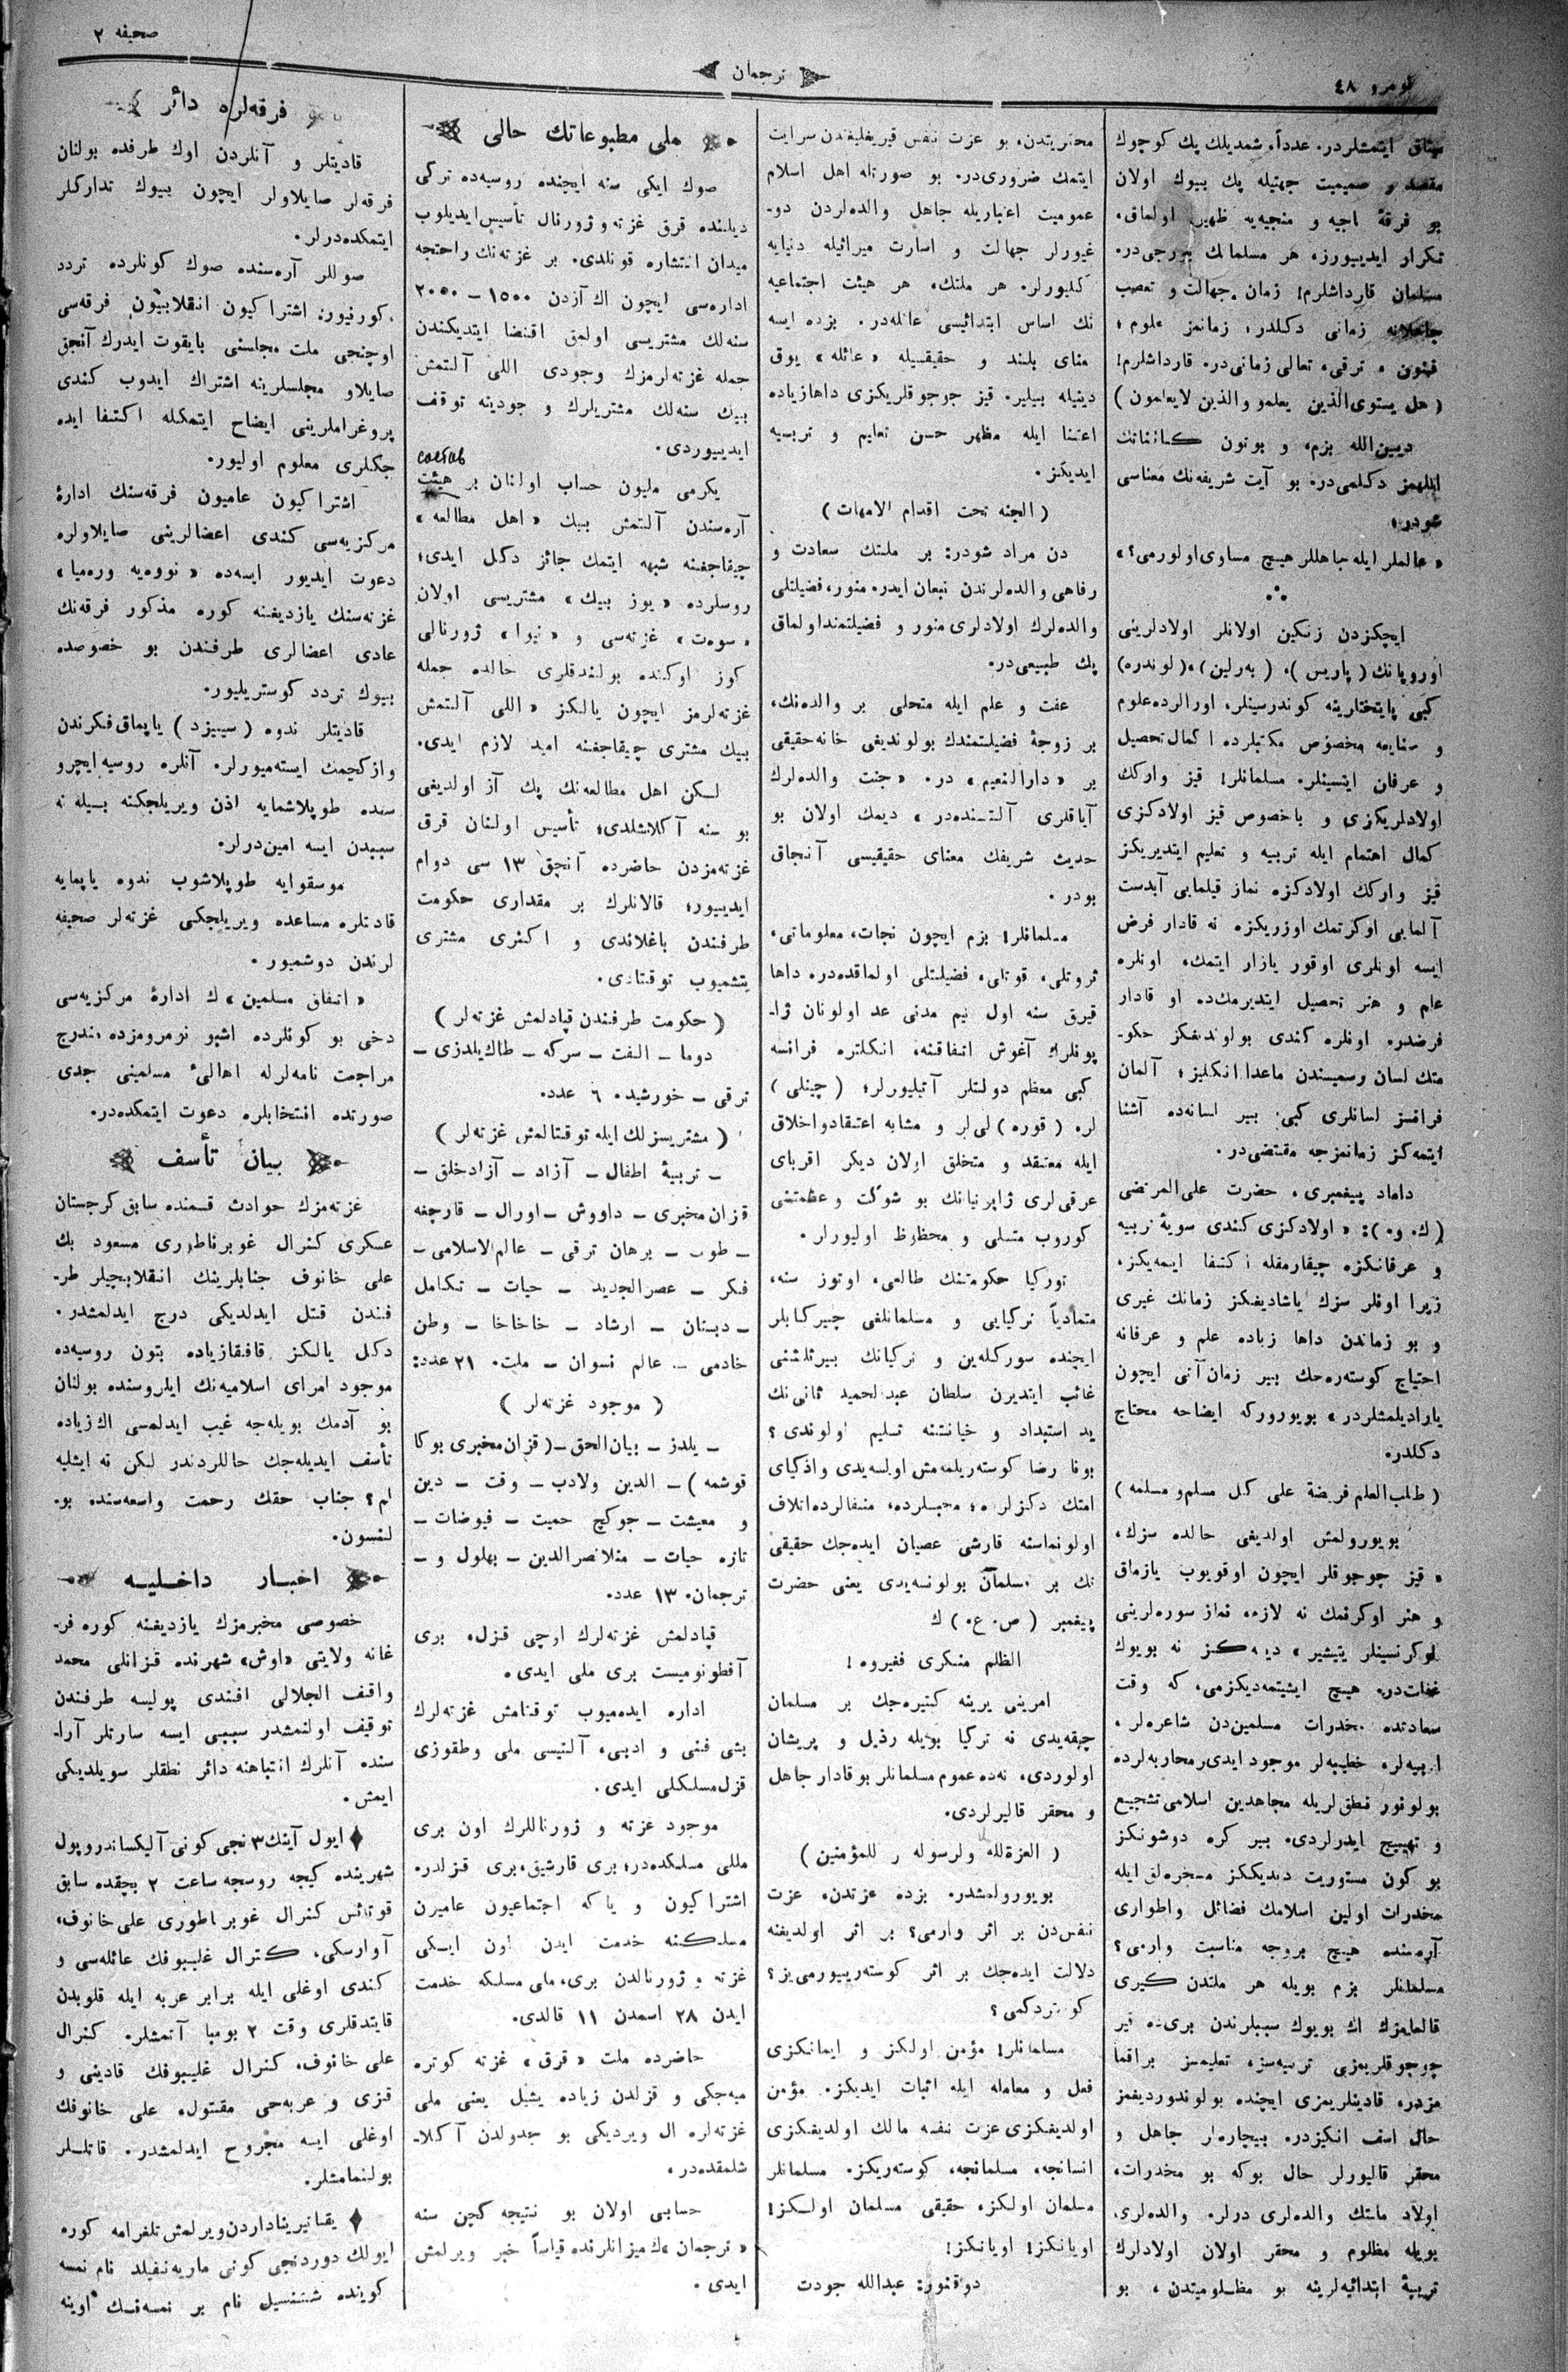 نومرو ٤٨
ترجمان
صحيفه ٢
ميثاق ايتمشلردر. عدداً، شمديلك پك كوچوك
مقصد و صميميت جهتيله پك بيوك اولان
بو فرقهٔ ناجيه و منجيه‌يه ظهير اولماق،
تكرار ايدييورز، هر مسلمانك بورجى‌در.
مسلمان قارداشلرم! زمان، جهالت و تعصب
جاهلانه زمانى دكلدر؛ زمانمز علوم،
فنون، ترقى، تعالى زمانى‌در. قارداشلرم!
(هل يستوى‌الذين يعلمو والذين لايعلمون)
ديين الله بزم، و بوتون كائناتك
اللهمز دكلمى‌در. بو آيت شريفه‌نك معناسى
شودر:
«عالملر ايله جاهللر هيچ مساوى اولورمى؟»
ايچكزدن زنكين اولانلر اولادلرينى
اوروپانك (پاريس)، (به‌رلين)، (لوندره)
كبى پايتختارينه كوندرسينلر، اورالرده علوم
و صنايعه مخصوص مكتبلرده اكمال تحصيل
و عرفان ايتسينلر. مسلمانلر! قيز واركك
اولادلريكزى و باخصوص قيز اولادكزى
كمال اهتمام ايله تربيه و تعليم ايتديريكز
قيز واركك اولادكزه نماز قيلمايى آبدست
آلمايى اوكرتمك اوزريكزه نه قادار فرض
ايسه اونلرى اوقور يازار ايتمك، اونلره
علم و هنر تحصيل ايتديرمك‌ده او قادار
فرضدر. اونلره كندى بولونديغكز حكو-
متك لسان رسميسندن ماعدا انكليز، آلمان
فرانسز لسانلرى كبى بير لسانه‌ده آشنا
ايتمه‌كز زمانمزجه مقتضى‌در.
داماد پيغمبرى، حضرت على‌المرتضى
(ك. و.): «اولادكزى كندى سويهٔ تربيه
و عرفانكزه چيقارمقله اكتفا ايتمه‌يكز،
زيرا اونلر سزك ياشاديغكز زمانك غيرى
و بو زماندن داها زياده علم و عرفانه
احتياج كوستره‌جك بير زمان آنى ايچون
ياراديلمشلردر» بويورورکه ايضاحه محتاج
دكلدر.
(طلب العلم فريضة على كل مسلم و مسلمه)
بويورولمش اولديغى حالده سزك،
«قيز چوجوقلر ايچون اوقويوب يازماق
و هنر اوكرنمك نه لازم، نماز سوره‌لرينى
اوكرنسينلر يتيشير» ديمه‌كز نه بويوك
غفلت‌در. هيچ ايشيتمه‌ديكزمى، كه وقت
سعادتده مخدرات مسلمين‌دن شاعره‌لر،
اديبه‌لر، خطيبه‌لر موجود ايدى محاربه‌لرده
بولونور نطق‌لريله مجاهدين اسلامى تشجيع
و تهييج ايدرلردى. بير كره دوشونكز
بو كون مستوريت ديديككز مسخره‌لق ايله
مخدرات اولين اسلامك فضائل واطوارى
آره‌سنده هيچ بروجه مناسبت وارمى؟
مسلمانلر بزم بويله هر ملتدن كيرى
قالمامزك اك بويوك سببلرندن برى‌ده قيز
چوجوقلريمزى تربيه‌سز، تعليمسز براقما
مزدر، قادينلريمزى ايچنده بولوندورديغمز
حال اسف انكيزدر. بيچاره‌لر جاهل و
محقر قاليورلر حال بوكه بو مخدرات،
اولاد ملتك والده‌لرى درلر. والده‌لرى
بويله مظلوم و محقر اولان اولادلرك
تربيهٔ ابتدائيه‌لرينه بو مظلوميتدن، بو
محقريتدن، بو عزت نفس قيريقليغندن سرايت
ايتمك ضرورى‌در. بو صورتله اهل اسلام
عموميت اعتباريله جاهل والده‌لردن دو-
غيورلر جهالت و اسارت ميراثيله دنيايه
كليورلر. هر ملتك، هر هيئت اجتماعيه
نك اساس ابتدائيسى عائله‌در. بزده ايسه
معناى بلند و حقيقسيله «عائله» يوق
دينيله بيلير. قيز جوجوقلريكزى داهازياده
اعتنا ايله مظهر حسن تعليم و تربيه
ايديكز.
(الجنه تحت اقدام الامهات)
دن مراد شودر: بر ملتك سعادت و
رفاهى والده‌لرندن نبعان ايدر. منور، فضيلتلى
والده‌لرك اولادلرى منور و فضيلتمند اولماق
پك طبيعى‌در.
عفت و علم ايله متحلى بر والده‌نك،
بر زوجهٔ فضيلتمندك بولونديغى خانه حقيقى
بر «دارالنعيم» در. «جنت والده‌لرك
آياقلرى آلتنده‌در» ديمك اولان بو
حديث شريفك معناى حقيقيسى آنجاق
بودر.
مسلمانلر! بزم ايچون نجات، معلوماتى،
ثروتلى، قوتلى، فضيلتلى اولماقده‌در، داها
قيرق سنه اول نيم مدنى عد اولونان ژا-
پونلرك آغوش اتفاقنه، انكلتره فرانسه
كبى معظم دولتلر آتيليورلر؛ (چينلى)
لره (قوره) لى‌لر و مشابه اعتقاد واخلاق
ايله معتقد و متخلق اولان ديكر اقرباى
عرقى‌لرى ژاپونيانك بو شوكت وعظمتنى
كوروب متسلى و محظوظ اوليورلر.
توركيا حكومتنك طالعى، اوتوز سنه،
متمادياً تركيايى و مسلمانلغى چيركابلر
ايچنده سوركله‌ين و تركيانك بيرنلشنى
غائب ايتديرن سلطان عبدالحميد ثانى‌نك
يد استبداد و خيانتنه تسليم اولوندى؟
بوقا رضا كوسته‌ريلمه‌مش اولسه‌يدى واذكياى
امتك دكزلره، محبسلرده، منفالرده اتلاف
اولونماسنه قارشى عصيان ايده‌جك حقيقى
تك بر مسلمان بولونسه‌يدى يعنى حضرت
پيغمبر (ص. ع.) ك
الظلم منكرى فغيروه!
امرينى يرينه كتيره‌جك بر مسلمان
چيقه‌يدى نه تركيا بويله رذيل و پريشان
اولوردى، نه‌ده عموم مسلمانلر بو قادار جاهل
و محقر قاليرلردى.
(العزةلله ولرسوله و للمؤمنين)
بويورولمشدر. بزده عزتدن، عزت
نفس‌دن بر اثر وارمى؟ بر اثر اولديغنه
دلالت ايده‌جك بر اثر كوسته‌ريبورمى‌يز؟
كوتردكمى؟
مسلمانلر! مؤمن اولكز و ايمانكزى
فعل و معامله ايله اثبات ايديكز. مؤمن
اولديغكزى عزت نفسه مالك اولديغكزى
انسانجه، مسلمانجه، كوسته‌ريكز. مسلمانلر
مسلمان اولكز، حقيقى مسلمان اولكز!
اويانكز! اويانكز!
دوقتور: عبدالله جودت
ملى مطبوعاتك حالى
صوك ايكى سنه ايچنده روسيه‌ده تركى
ديلنده قرق غزته و ژورنال تأسيس ايديلوب
ميدان انتشاره قونلدى. بر غزته‌نك واحتجه
اداره‌سى ايچون اك آزدن ١٥٠٠ – ٢٠٠٠
سنه‌لك مشتريسى اولمق اقتضا ايتديكندن
جمله غزته‌لرمزك وجودى اللى آلتمش
بيك سنه‌لك مشتريلرك و جودينه توقف
ايدييوردى.
состав
يكرمى مليون حساب اولنان بر هيئت
آره‌سندن آلتمش بيك «اهل مطالعه»
چيقاجغنه شبهه ايتمك جائز دكل ايدى؛
روسلرده «يوز بيك» مشتريسى اولان
«سوه‌ت» غزته‌سى و «نيوا» ژورنالى
كوز اوكنده بولندقلرى حالده جمله
غزته‌لرمز ايچون يالكز «اللى آلتمش
بيك مشترى چيقاجغنه اميد لازم ايدى.
لكن اهل مطالعه‌نك پك آز اولديغى
بو سنه آكلاشلدى؛ تأسيس اولنان قرق
غزته‌مزدن حاضرده آنجق ١٣ سى دوام
ايدييور؛ قالانلرك بر مقدارى حكومت
طرفندن باغلاندى و اكثرى مشترى
يتشميوب توقتادى.
(حكومت طرفندن قپادلمش غزته‌لر)
دوما – الفت – سركه – طاك يلدزى –
ترقى – خورشيد. ٦ عدد.
(مشتريسزلك ايله توقتالمش غزته‌لر)
– تربيهٔ اطفال – آزاد – آزاد خلق –
قزان مخبرى – داووش – اورال – قارچغه
– طوب – برهان ترقى – عالم الاسلامى –
فكر – عصرالجديد – حيات – تكامل
– دبستان – ارشاد – خاخاخا – وطن
خادمى – عالم نسوان – ملت. ٢١ عدد:
(موجود غزته‌لر)
– يلدز – بيان الحق – (قزان مخبرى بوكا
قوشمه) – الدين ولادب – وقت – دين
و معيشت – جوكچ حميت – فيوضات –
تازه حيات – منلانصرالدين – بهلول و –
ترجمان. ١٣ عدد.
قپادلمش غزته‌لرك اوچى قزل، برى
آفطونوميست برى ملى ايدى.
اداره ايده‌ميوب توقتامش غزته‌لرك
بشى فنى و ادبى، آلتيسى ملى وطقوزى
قزل مسلكلى ايدى.
موجود غزته و ژورناللرك اون برى
مللى مسلكده‌در؛ برى قارشيق، برى قزلدر.
اشتراكيون و ياكه اجتماعيون عاميون
مسلكنه خدمت ايدن اون ايكى
غزته و ژورنالدن برى، ملى مسلكه خدمت
ايدن ٢٨ اسمدن ١١ قالدى.
حاضرده ملت «قرق» غزته كوتره
ميه‌جكى و قزلدن زياده يشيل يعنى ملى
غزته‌لره ال ويرديكى بو جدولدن آكلا-
شلمقده‌در.
حسابى اولان بو نتيجه كچن سنه
«ترجمان»ك ميزانلرنده قياساً خبر ويرلمش
ايدى.
فرقه‌لره دائر
قاديتلر و آنلردن اوك طرفده بولنان
فرقه‌لر صايلاولر ايچون بيوك تداركلر
ايتمكده‌درلر.
صوللر آره‌سنده صوك كونلرده تردد
كورنيور؛ اشتراكيون انقلابيون فرقه‌سى
اوچنجى ملت مجلسنى بايقوت ايدرك آنجق
صايلاو مجلسلرينه اشتراك ايدوب كندى
پروغراملرينى ايضاح ايتمكله اكتفا ايده
جكلرى معلوم اوليور.
اشتراكيون عاميون فرقه‌سنك ادارهٔ
مركزيه‌سى كندى اعضالرينى صايلاولره
دعوت ايديور ايسه‌ده «نووه‌يه وره‌ميا»
غزته‌سنك يازديغنه كوره مذكور فرقه‌نك
عادى اعضالرى طرفندن بو خصوصده
بيوك تردد كوستريليور.
قاديتلر ندوه (سييزد) ياپماق فكرندن
وازكچمك ايسته‌ميورلر. آنلره روسيه ايچرو
سنده طوپلاشمايه اذن ويريلجكنه بيله نه
سببدن ايسه امين‌درلر.
موسقوايه طوپلاشوب ندوه ياپمايه
قادتلره مساعده ويريلجكى غزته‌لر صحيفه
لرندن دوشميور.
«اتفاق مسلمين»ك ادارهٔ مركزيه‌سى
دخى بو كونلرده اشبو نومرومزده مندرج
مراجعت نامه‌لرله اهالىٔ مسلمينى جدى
صورتده انتخابلره دعوت ايتمكده‌در.
بيان تأسف
غزته‌مزك حوادث قسمنده سابق كرجستان
عسكرى كنرال غوبرناطورى مسعود بك
على خانوف جنابلرينك انقلابچيلر طر-
فندن قتل ايدلديكى درج ايدلمشدر.
دكل يالكز قافقازياده بتون روسيه‌ده
موجود امراى اسلاميه‌نك ايلروسنده بولنان
بو آدمك بويله‌جه غيب ايدلمسى اك زياده
تأسف ايديله‌جك حاللردندر لكن نه ايشليه
لم؟ جناب حقك رحمت واسعه‌سنده بو-
لنسون.
اخبار داخليه
خصوصى مخبرمزك يازديغنه كوره فر-
غانه ولايتى «اوش» شهرنده قزانلى محمد
واقف الجلالى افندى پوليسه طرفندن
توقيف اولنمشدر سببى ايسه سارتلر آرا-
سنده آنلرك انتباهنه دائر نطقلر سويلديكى
ايمش.
ايول آينك ٣نجى كونى آليكساندروپول
شهرينده كيجه روسجه ساعت ٢ بچقده سابق
قوتائس كنرال غوبرناطورى على خانوف،
آوارسكى، كنرال غليبوفك عائله‌سى و
كندى اوغلى ايله برابر عربه ايله قلوبدن
قايتدقلرى وقت ٢ بومبا آتمشلر. كنرال
على خانوف، كنرال غليبوفك قادينى و
قزى و عربه‌جى مقتول، على خانوفك
اوغلى ايسه مجروح ايدلمشدر. قاتللر
بولنمامشلر.
يقاتيريناداردن ويرلمش تلغرامه كوره
ايولك دوردنجى كونى ماريه‌نفيلد نام نمسه
كوينده شتنسيل نام بر نمسه‌نك اوينه